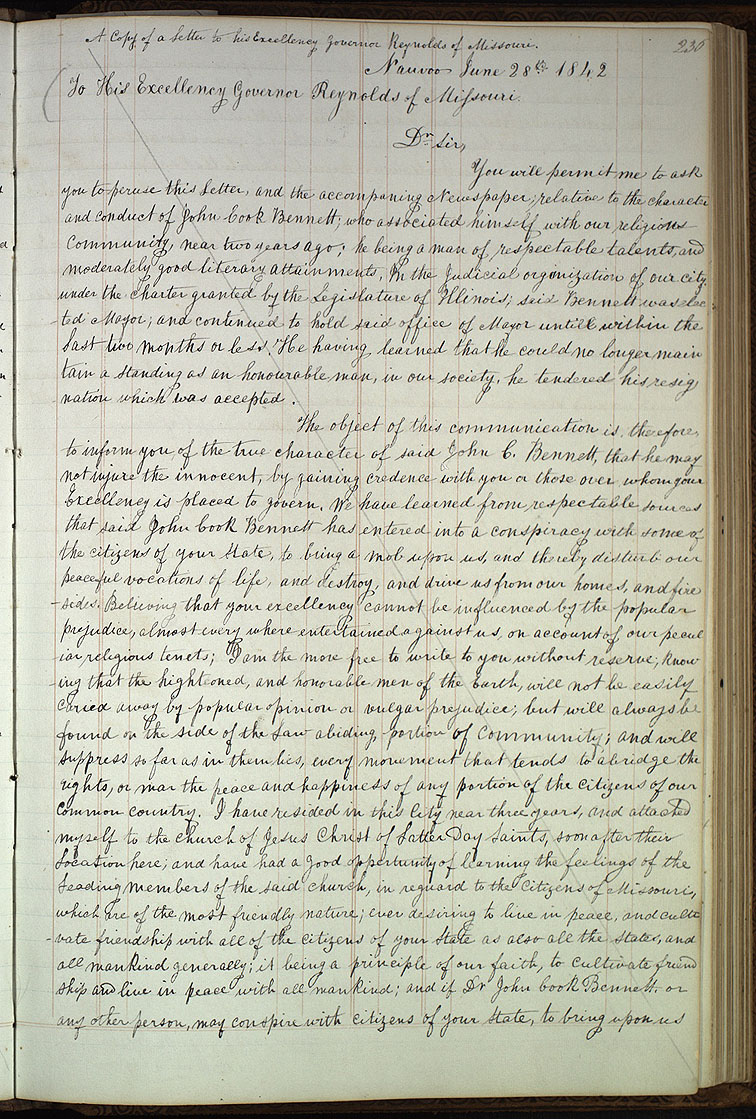 A Copy of a Letter to his Excellency Governor Reynolds of Missouri.
230
Nauvoo June 28th 1842
To His Excellency Governor Reynolds of Missouri.
Dr Sir,
You will permit me to ask
you to peruse this Letter, and the accompaning Newspaper, relative to the character
and conduct of John Cook Bennett, who associated himself with our religious
Community, near two years ago; he being a man of respectable talents, and
moderately good literary attainments, In the Judicial organization of our city,
under the charter granted by the Legislature of Illinois; said Bennett was elec
ted Mayor; and continued to hold said office of Mayor untill within the
Last two months or less. He having learned that he could no longer main
tain a standing as an honourable man, in our society, he tendered his resig
nation which was accepted.
The object of this communication is, therefore,
to inform you of the true character of said John C. Bennett, that he may
not injure the innocent, by gaining credence with you or those over whom your
Excellency is placed to govern. We have learned from respectable sources
that said John Cook Bennett has entered into a conspiracy with some of
the citizens of your State, to bring a mob upon us, and thereby disturb our
peaceful vocations of life, and destroy, and drive us from our homes, and fire
sides. Believing that your excellency cannot be influenced by the popular
prejudice, almost every where entertained against us, on account of our pecul
iar religious tenets; I am the more free to write to you without reserve; know
ing that the hightoned, and honorable men of the Earth, will not be easily
caried away by popular opinion or vulgar prejudice; but will always be
found on the side of the Law abiding portion of Community; and will
suppress so far as in them lies, every movement that tends to abridge the
rights, or mar the peace and happiness of any portion of the citizens of our
common country. I have resided in this City near three years, and attached
myself to the Church of Jesus Christ of Latter Day Saints, soon after their
Location here; and have had a good opportunity of learning the feelings of the
Leading members of the said church, in reguard to the Citizens of Missouri,
which are of the most friendly nature; ever desiring to live in peace, and culti
vate friendship with all of the citizens of your State as also all the States, and
all mankind generally; it being a principle of our faith, to cultivate friend
ship and live in peace with all mankind; and if Dr John Cook Bennett, or
any other person, may conspire with citizens of your State, to bring upon us